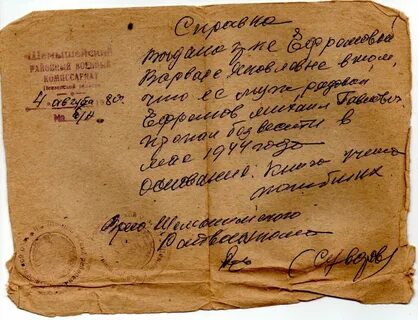 Шемышейский
РАЙОННЫЙ ВОЕННЫЙ
КОМИССАРИАТ
4 августа 1980г.
№ б/н
Справка
Выдана гр-ке Ефремовой
Варваре Яковлевне в том,
что её муж рядовой
Ефремов Михаил Павлович
пропал без вести в
мае 1944 года
основание: Книга учета
погибших
Врио Шемышейского
Райвоенкома
(Суворов)